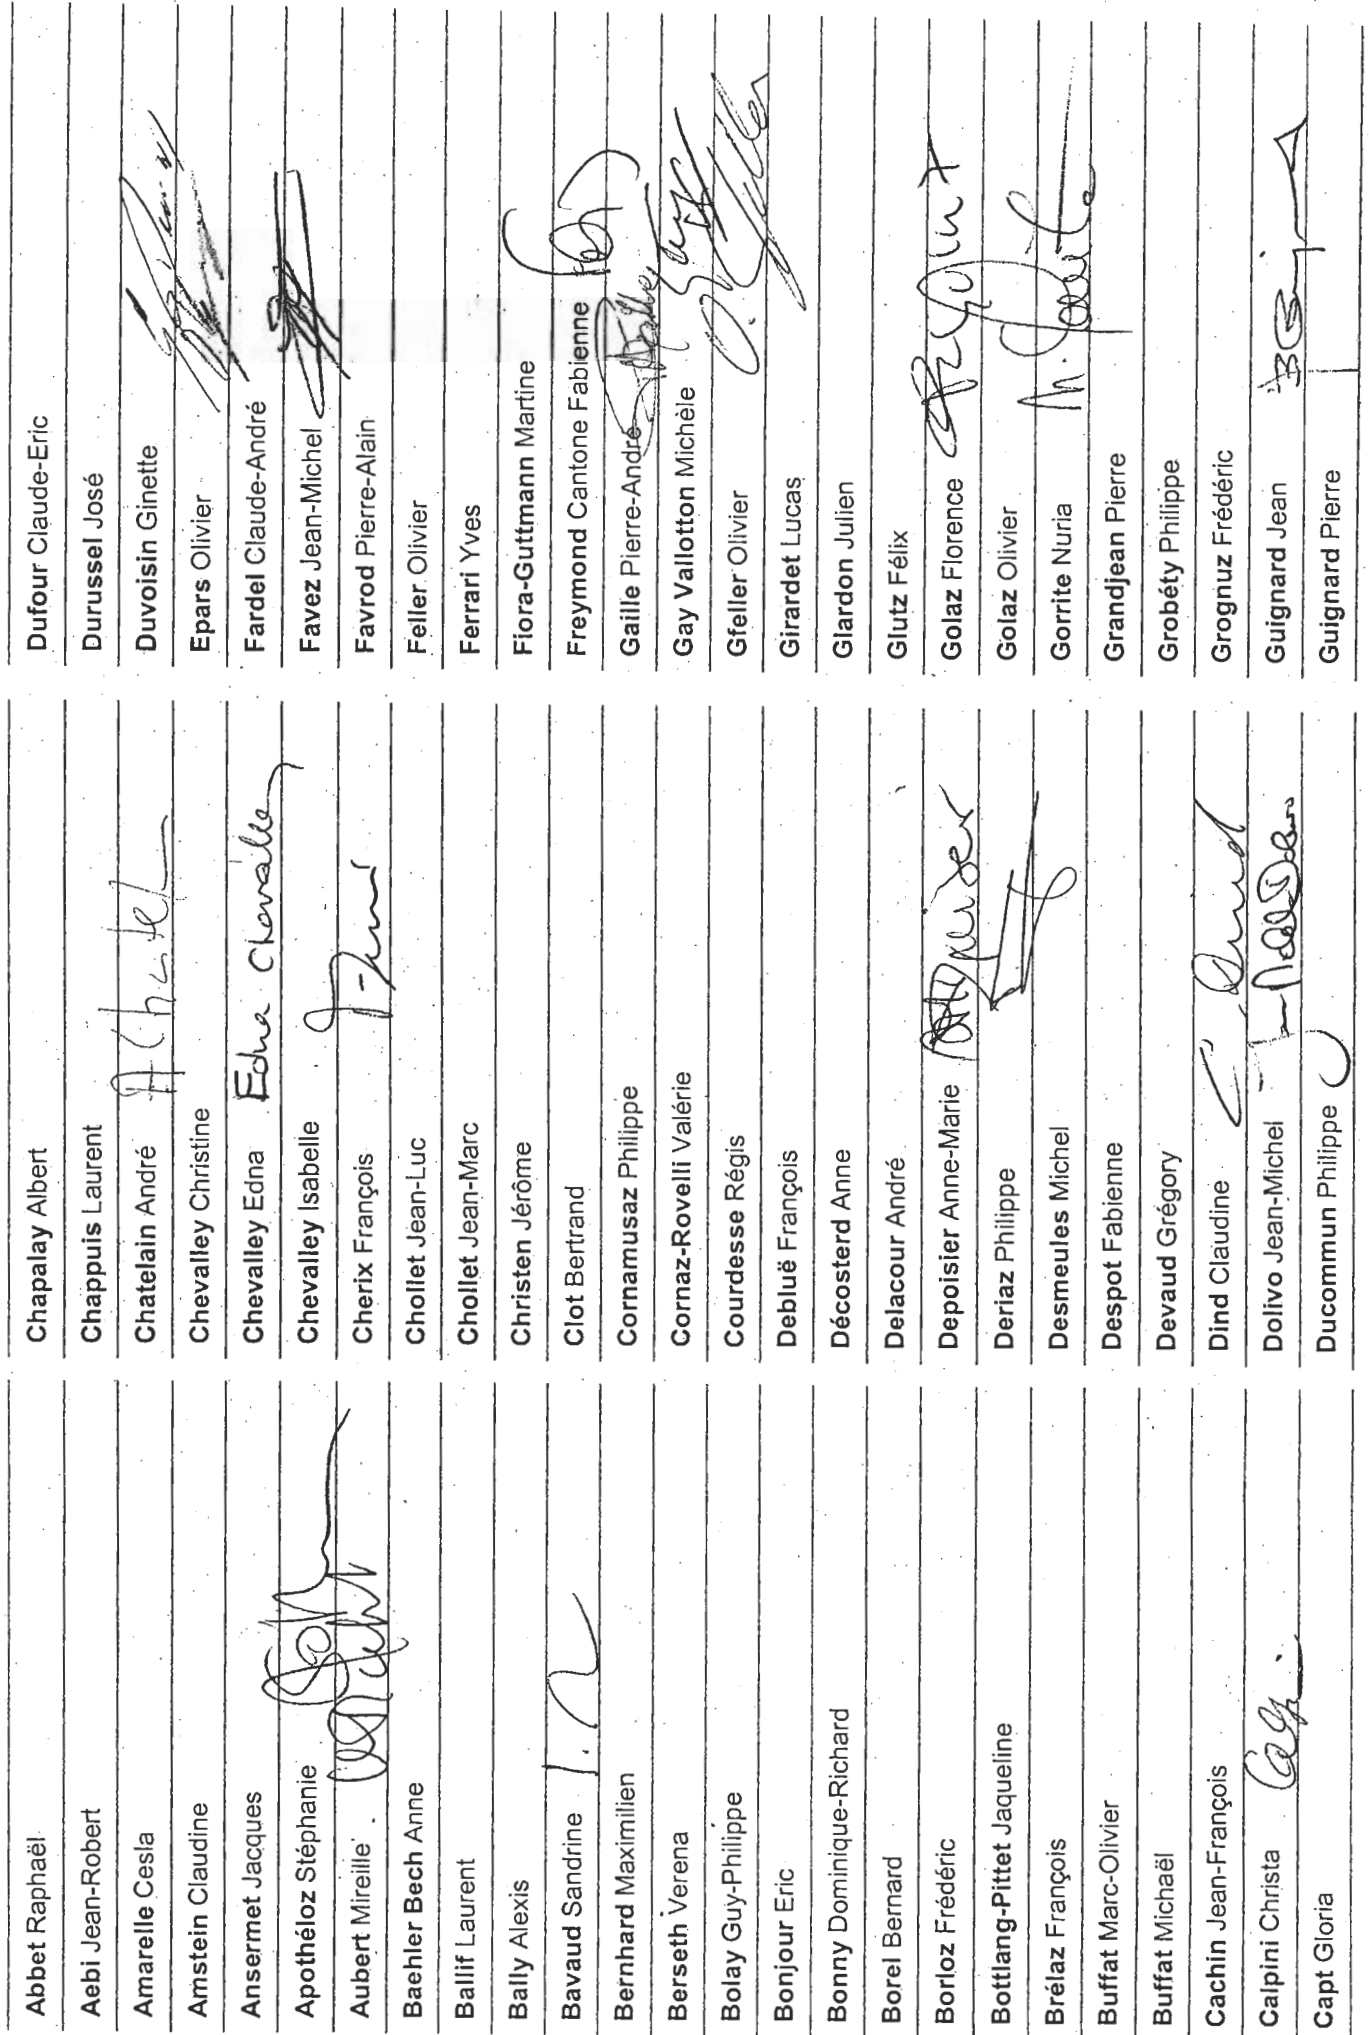 Abbet Raphaël
Aebi Jean-Robert
Amarelle Cesla
Amstein Claudine
Ansermet Jacques
Apothéloz Stéphanie
Aubert Mireille
Baehler Bech Anne
Ballif Laurent
Bally Alexis
Bavaud Sandrine
Bernhard Maximilien
Berseth Verena
Bolay Guy-Philippe
Bonjour Eric
Bonny Dominique-Richard
Borel Bernard
Borloz Frédéric
Bottlang-Pittet Jaqueline
Brélaz François
Buffat Marc-Olivier
Buffat Michaël
Cachin Jean-François
Calpini Christa
Capt Gloria
Chapalay Albert
Chappuis Laurent
Chatelain André A Chatel
Chevalley Christine
Chevalley Edna Edna Chevalley
Chevalley Isabelle
Cherix François
Chollet Jean-Luc
Chollet Jean-Marc
Christen Jérôme
Clot Bertrand
Cornamusaz Philippe
Cornaz-Rovelli Valérie
Courdesse Régis
Debluë François
Décosterd Anne
Delacour André
Depoisier Anne-Marie
Deriaz Philippe
Desmeules Michel
Despot Fabienne
Devaud Grégory
Dind Claudine
Dolivo Jean-Michel
Ducommun Philippe
Dufour Claude-Eric
Durussel José
Duvoisin Ginette
Epars Olivier
Fardel Claude-André
Favez Jean-Michel
Favrod Pierre-Alain
Feller Olivier
Ferrari Yves
Fiora-Guttmann Martine
Freymond Cantone Fabienne
Gaille Pierre-André
Gay Vallotton Michèle
Gfeller Olivier O. Gfeller
Girardet Lucas
Glardon Julien
Glutz Félix
Golaz Florence
Golaz Olivier
Gorrite Nuria
Grandjean Pierre
Grobéty Philippe
Grognuz Frédéric
Guignard Jean
Guignard Pierre